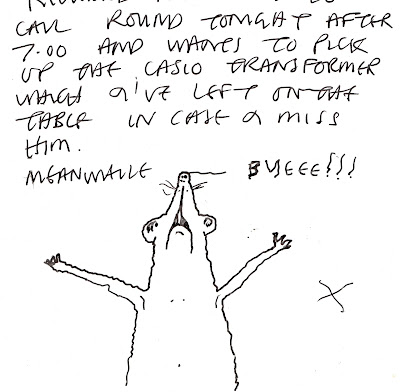 CALL ROUND TONIGHT AFTER
7.00 AND WANTS TO PICK
UP THE CASIO TRANSFORMER
WHICH I'VE LEFT ON THE
TABLE IN CASE I MISS
HIM.
MEANWHILE BYEEE!!!
X